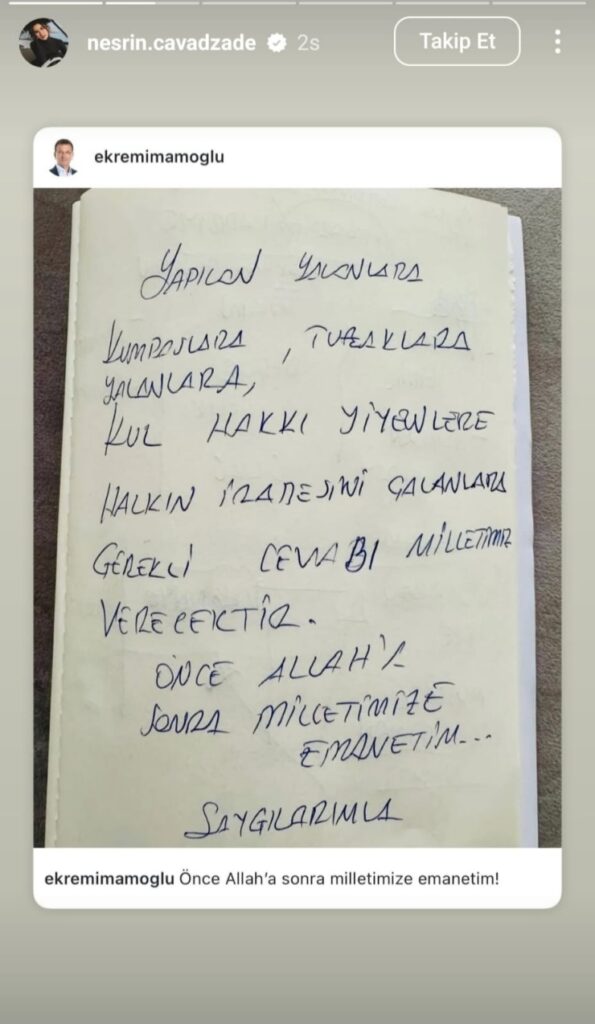 nesrin.cavadzade 2s Takip Et
ekremimamoglu
YAPILAN YALANLARA
KUMPASLARA, TUZAKLARA
YALANLARA,
KUL HAKKI YİYENLERE
HALKIN İRADESİNİ ÇALANLARA
GEREKLİ CEVABI MİLLETİMİZ
VERECEKTİR.
ÖNCE ALLAH'A
SONRA MİLLETİMİZE
EMANETİM...
SAYGILARIMLA
ekremimamoglu Önce Allah'a sonra milletimize emanetim!